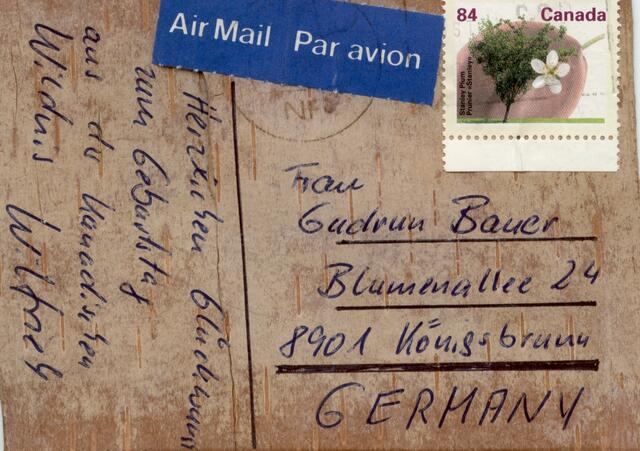 Air Mail Par avion
84 Canada
Stanley Plum
Prunier «Stanley»
NF
Herzlichen Glückwunsch
zum Geburtstag
aus der Kanadischen
Wildnis
Wilfried
Frau
Gudrun Bauer
Blumenallee 24
8901 Königsbrunn
GERMANY